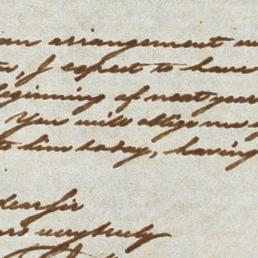 an arrangement
, I expect to have
beginning of next year
You will oblige me
to him today, having
dear Sir
very truly